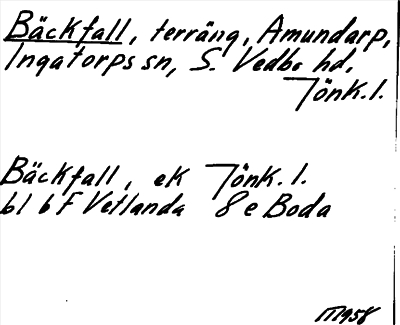 Bäckfall, terräng, Amundarp,
Ingatorps sn, S. Vedbo hd,
Jönk. l.
Bäckfall, ek Jönk. l.
bl 6 F Vetlanda 8 e Boda
1958